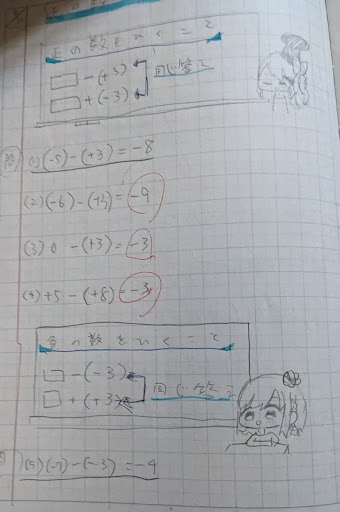 正の数をひくこと
□-(+3)
□+(-3)
同じ答え
(1)(-5)-(+3)=-8
(2)(-6)-(+3)=-9
(3) 0 -(+3)=-3
(4)+5-(+8)=-3
負の数をひくこと
□-(-3)
□+(+3)
同じ答え
(5)(-7)-(-3)=-4